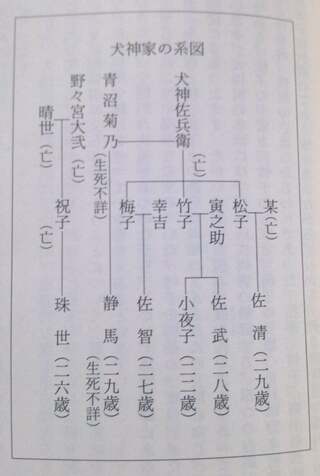 犬神家の系図
犬神佐兵衛(亡)
青沼菊乃(生死不詳)
野々宮大弐(亡)
晴世(亡)
某(亡)
松子
寅之助
竹子
幸吉
梅子
祝子(亡)
佐清(二九歳)
佐武(二八歳)
小夜子(二二歳)
佐智(二七歳)
静馬(二九歳)(生死不詳)
珠世(二六歳)